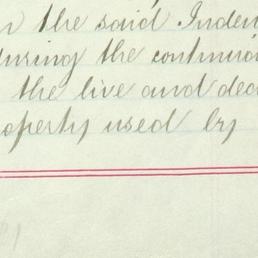 the said Inden
during the continua
the live and dea
operty used by